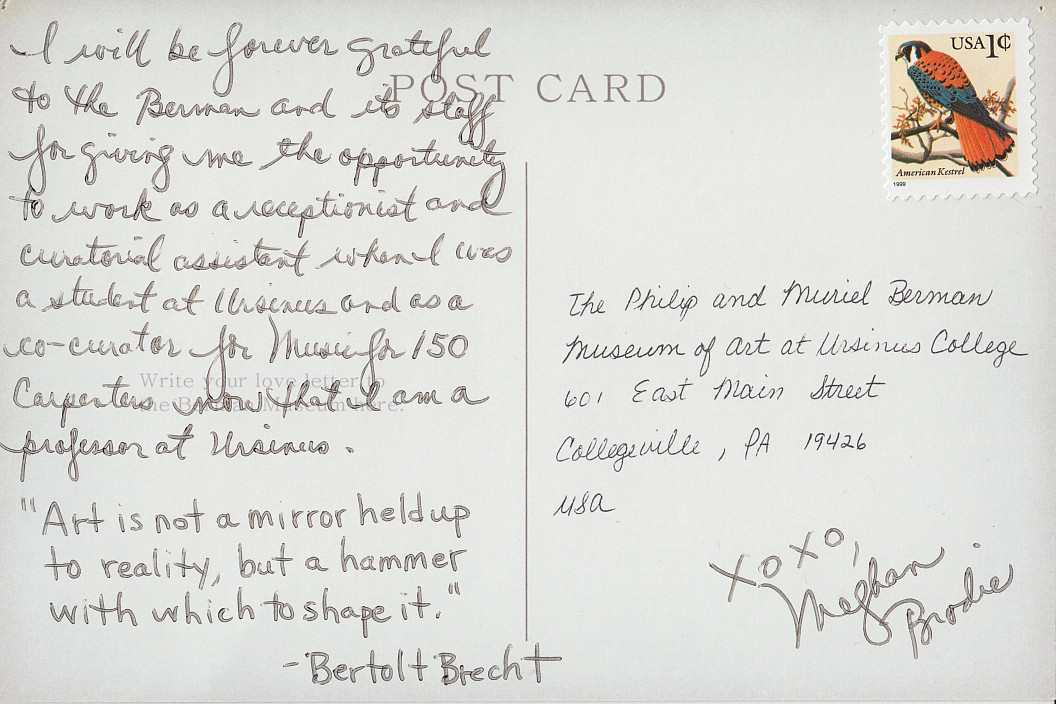 I will be forever grateful
to the Berman and its staff
for giving me the opportunity
to work as a receptionist and
curatorial assistant when I was
a student at Ursinus and as a
co-curator for Music for 150
Carpenters now that I am a
professor at Ursinus.
"Art is not a mirror held up
to reality, but a hammer
with which to shape it."
- Bertolt Brecht
POST CARD
Write your love letter to
the Berman Museum here.
USA 1¢
American Kestrel
1999
The Philip and Muriel Berman
Museum of Art at Ursinus College
601 East Main Street
Collegeville, PA 19426
USA
XOXO,
Meghan
Brodie